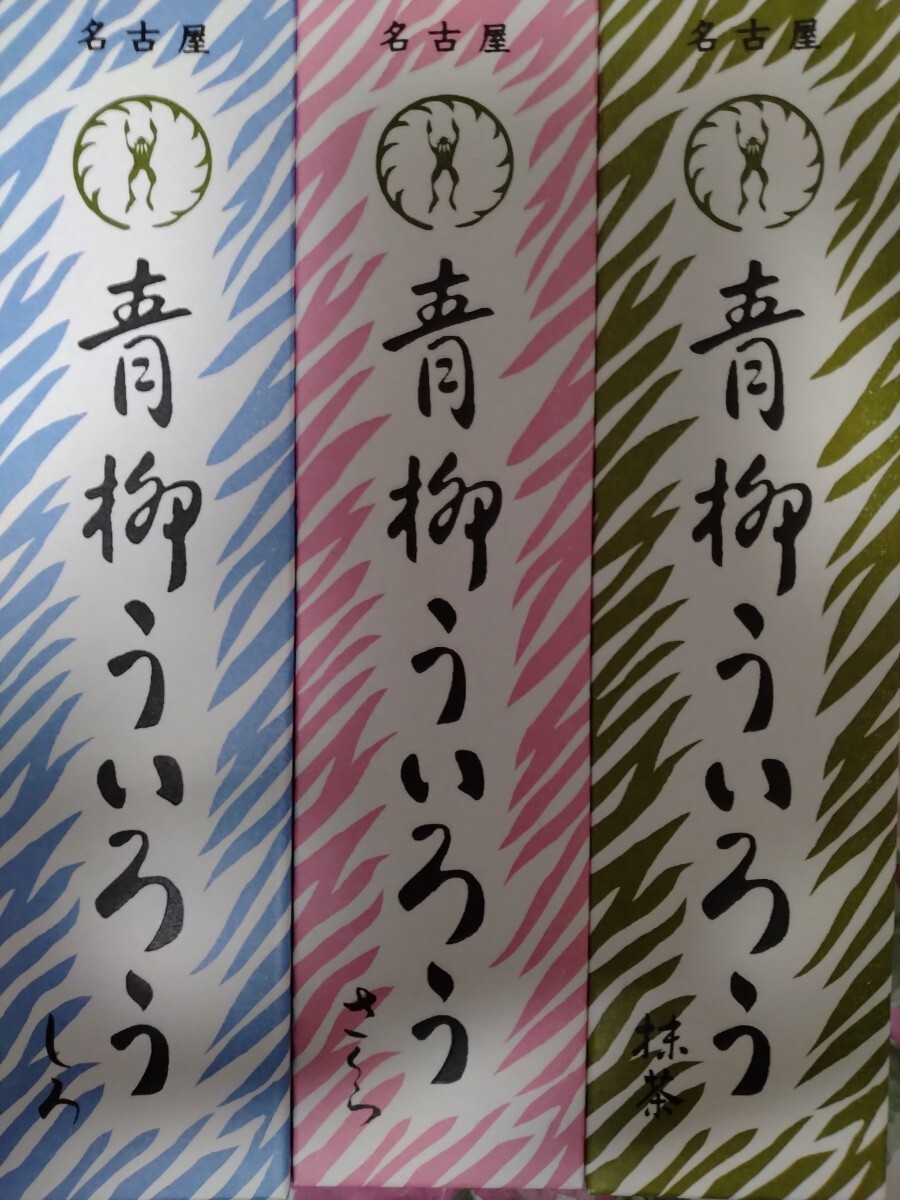 名古屋
青柳ういろう
しろ
名古屋
青柳ういろう
さくら
名古屋
青柳ういろう
抹茶